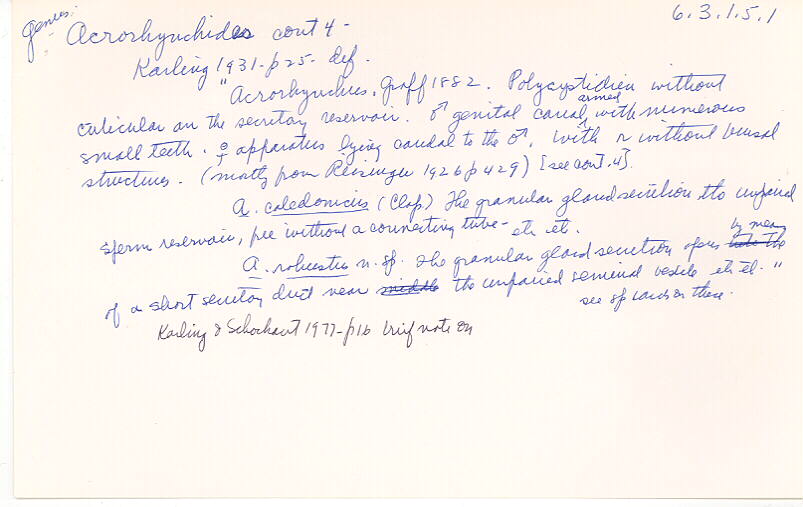 6.3.1.5.1
genus:
Acrorhynchides cont 4 -
Karling 1931 - p 25 - def.
"Acrorhynchus, Graff 1882. Polycystidien without
cuticular on the secretory reservoir. ♂ genital canal, armed with numerous
small teeth. ♀ apparatus lying caudal to the ♂, with or without bursal
structures. (mostly from Reisinger 1926 p 429) [see cont. 4].
A. caledonicus (Clap.) The granular gland secretion the unpaired
sperm reservoir, free without a connecting tube - etc etc.
A. robustus n. sp. The granular gland secretion opens into the by means
of a short secretory duct near middle the unpaired seminal vesicle etc etc. "
see sp cards on these.
Karling & Schockaert 1977 - p 16 brief note on